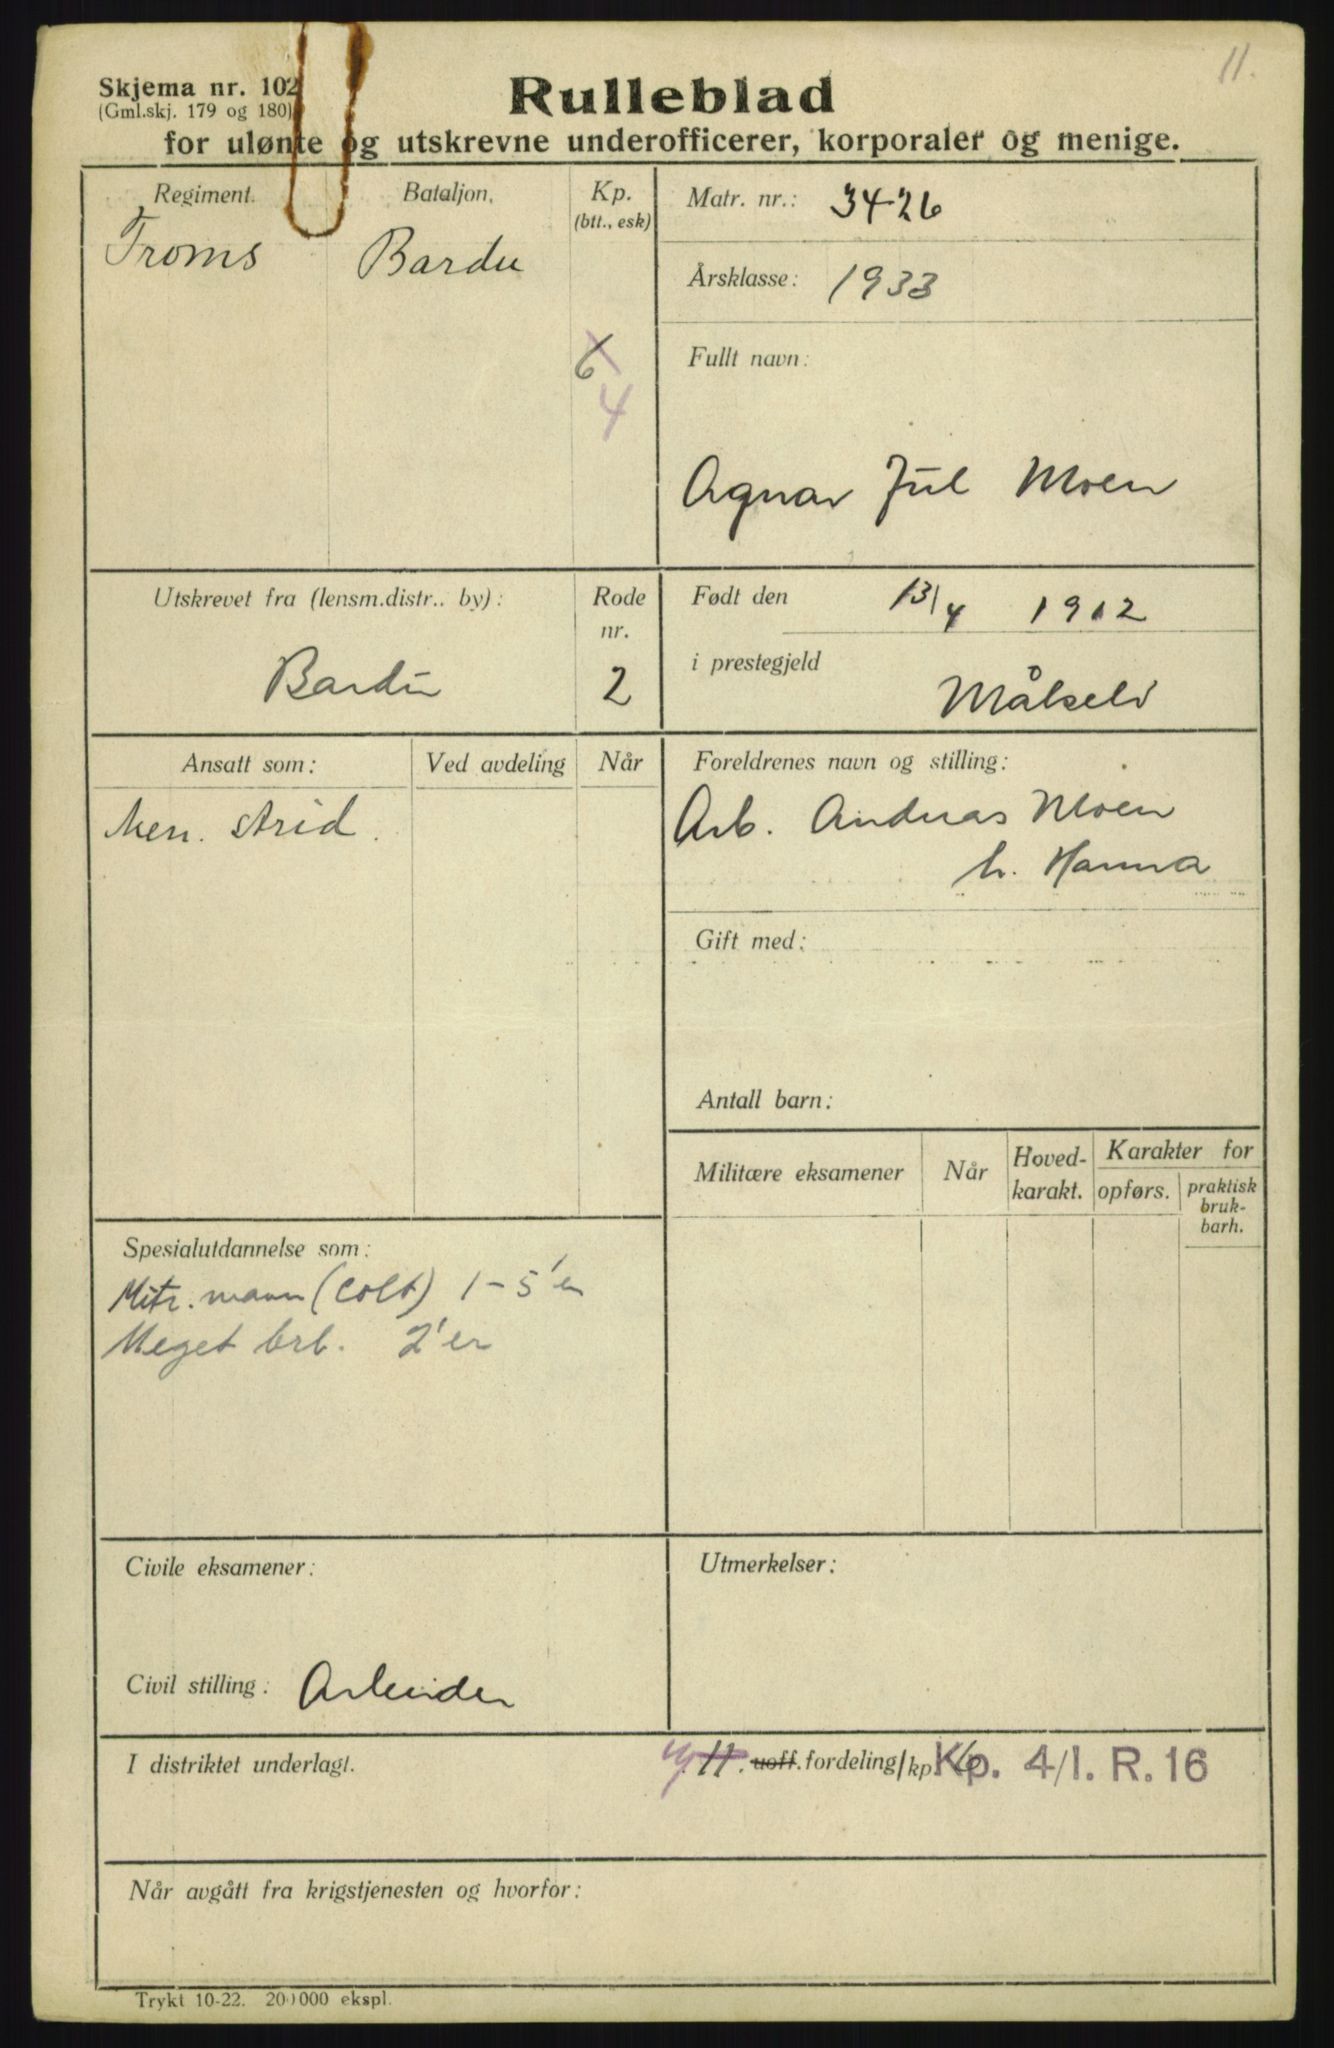 11.
Skjema nr. 102
(Gml.skj. 179 og 180)
Rulleblad
for ulønte og utskrevne underofficerer, korporaler og menige.
Regiment.
Bataljon.
Kp.
(btt., esk)
Troms
Bardu
6
4
Matr. nr.: 3426
Årsklasse: 1933
Fullt navn:
Agnar Jul Moen
Utskrevet fra (lensm.distr.. by):
Bardu
Rode
nr.
2
Født den 13/4 1912
i prestegjeld
Målselv
Ansatt som:
Ved avdeling
Når
Men. strid.
Foreldrenes navn og stilling:
Arb. Andreas Moen
h. Hanna
Gift med:
Antall barn:
Militære eksamener
Når
Hoved-
karakt.
Karakter for
opførs.
praktisk
bruk-
barh.
Spesialutdannelse som:
Mitr. mann (Colt) 1-5'er
Meget brb. 2'er
Civile eksamener:
Civil stilling: Arbeider
Utmerkelser:
I distriktet underlagt.
11. uoff. fordeling/kp. 6
Kp. 4/I. R. 16
Når avgått fra krigstjenesten og hvorfor:
Trykt 10-22. 200000 ekspl.